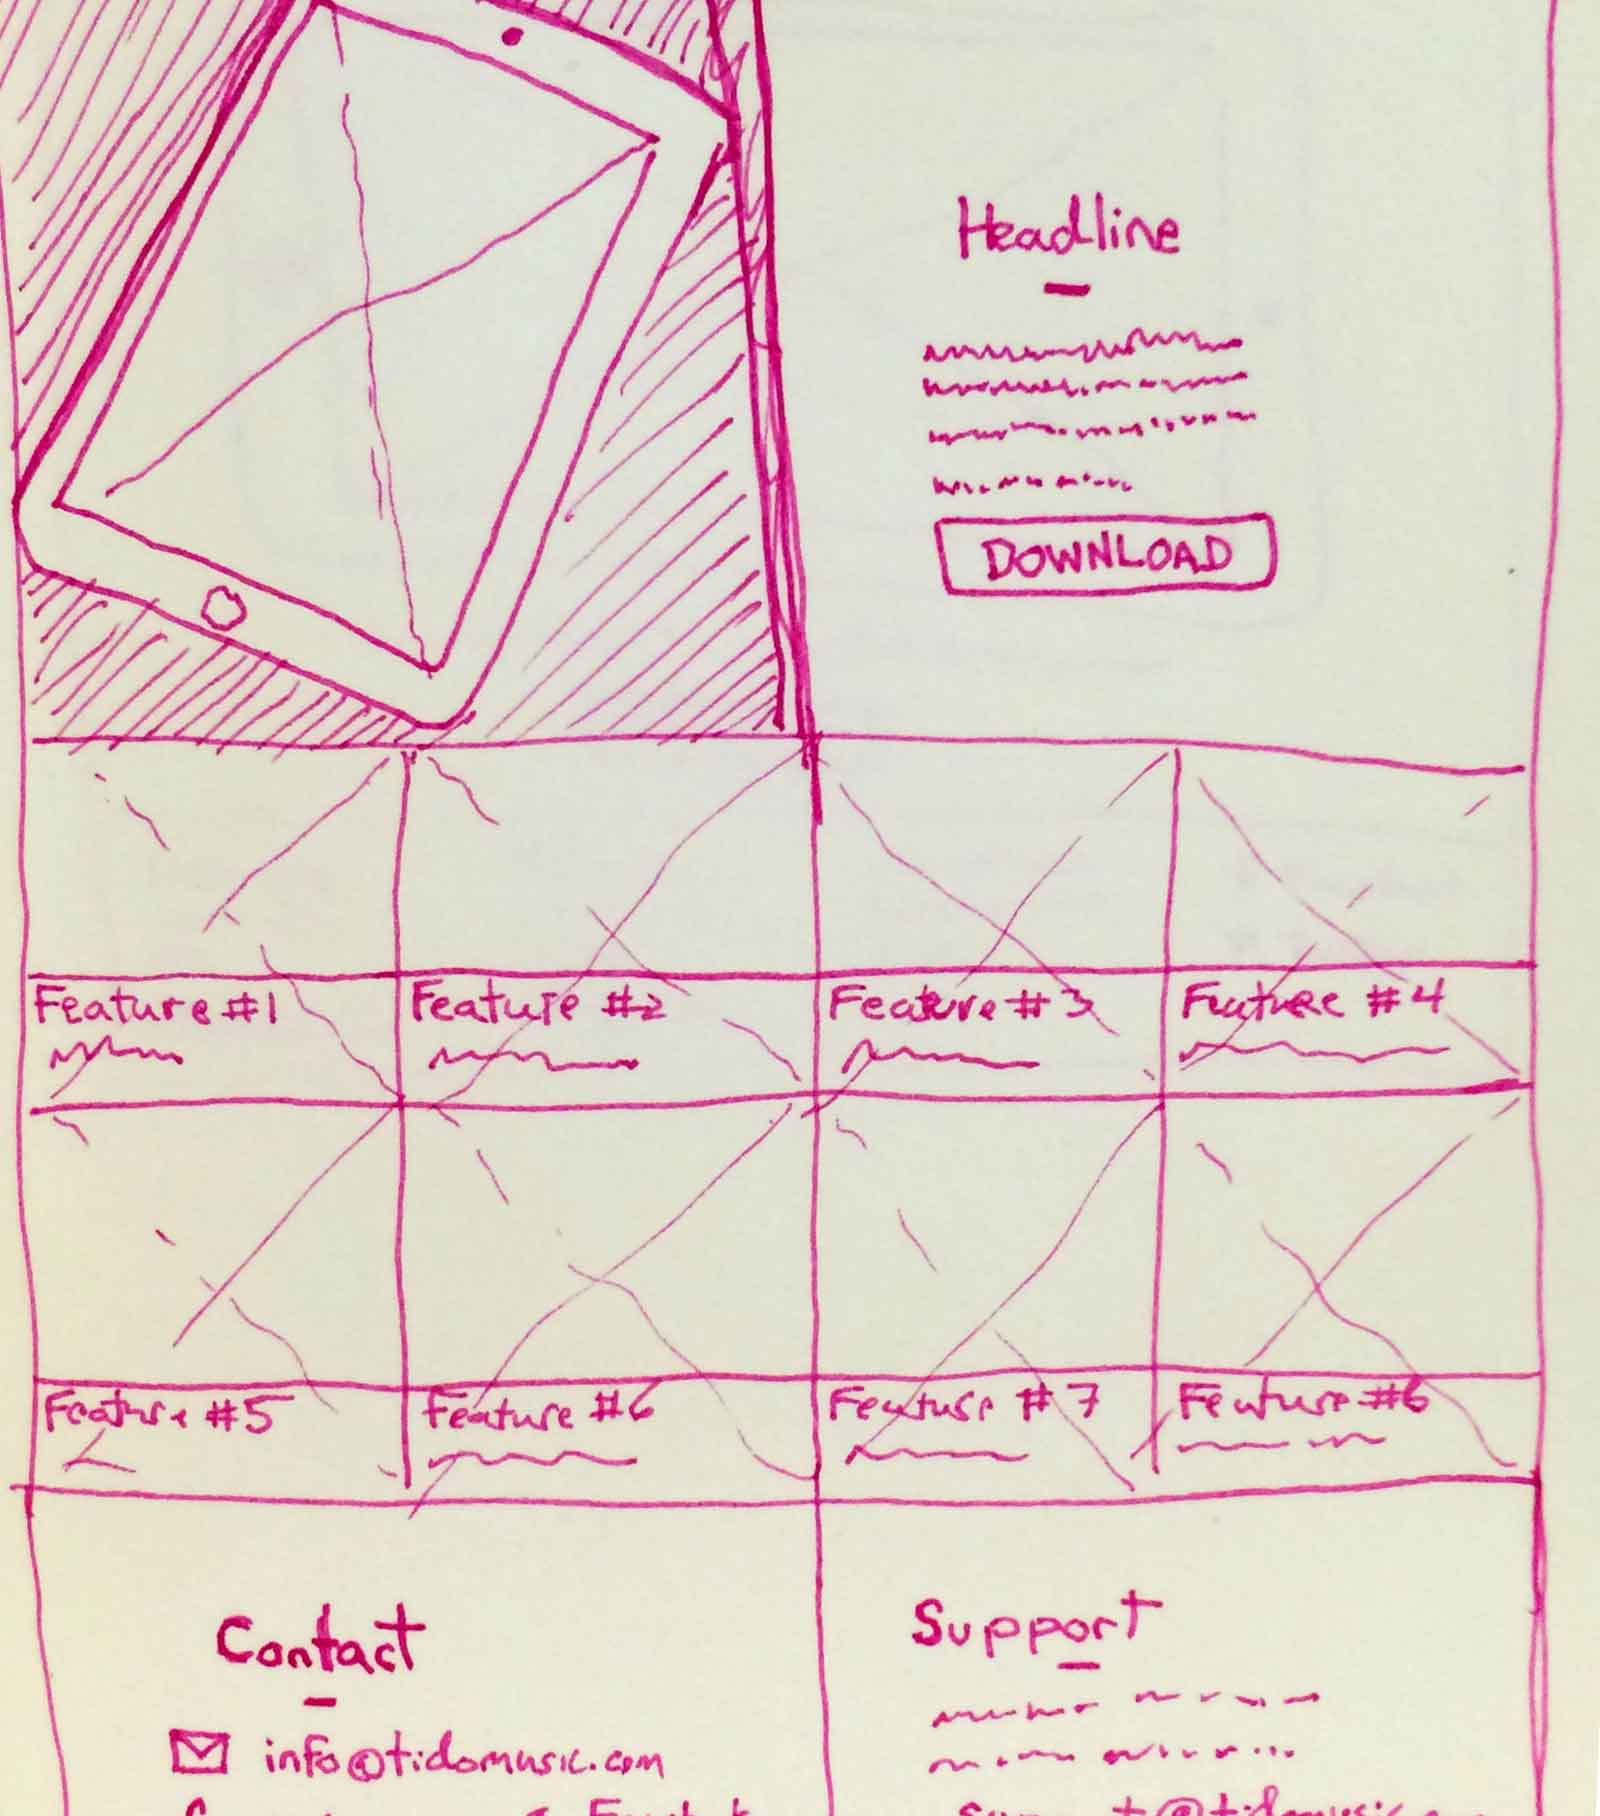 Headline
DOWNLOAD
Feature #1
Feature #2
Feature #3
Feature #4
Feature #5
Feature #6
Feature #7
Feature #6
Contact
info@tidomusic.com
Support